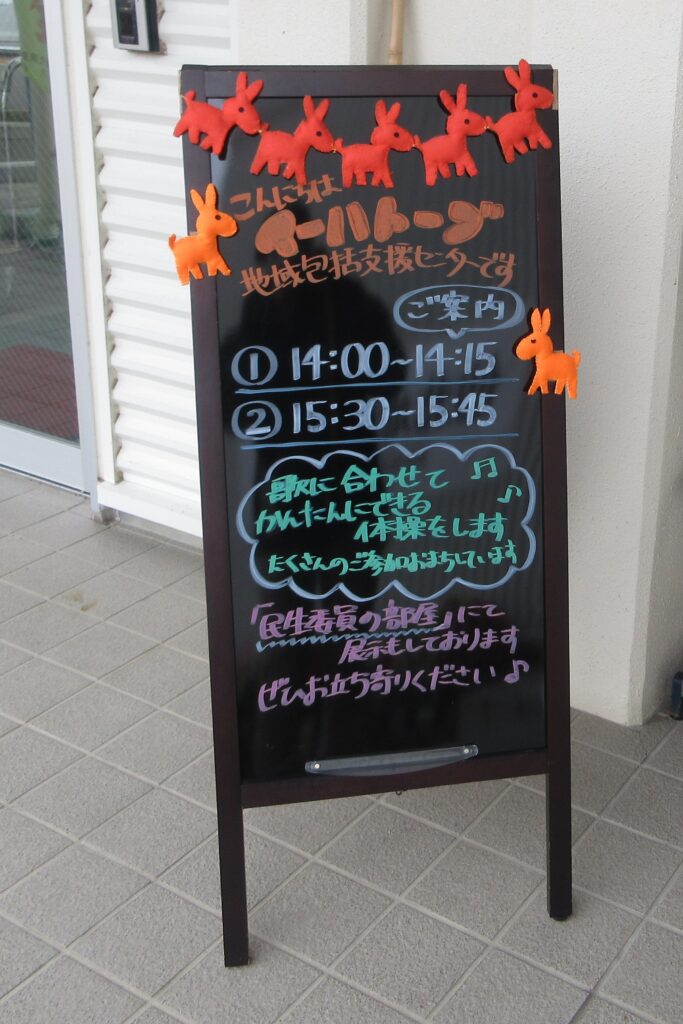 こんにちは
イーハトーブ
地域包括支援センターです
ご案内
① 14:00~14:15
② 15:30~15:45
歌に合わせて
かんたんにできる
体操をします
たくさんのご参加おまちしています
「民生委員の部屋」にて
展示もしております
ぜひお立ち寄りください♪